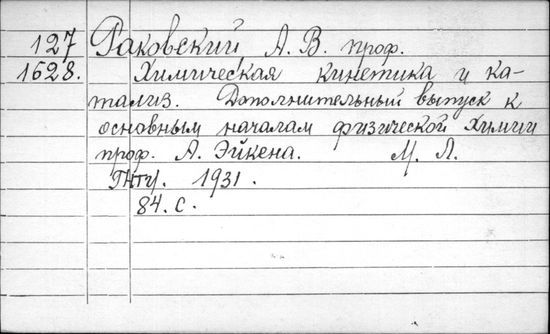 127 Раковский, А. В. проф.
1628. Химическая кинетика и ка-
тализ. Дополнительный выпуск к
основным началам физической химии
проф. А. Эйкена. М. Л.
ГНТИ. 1931.
84. с.